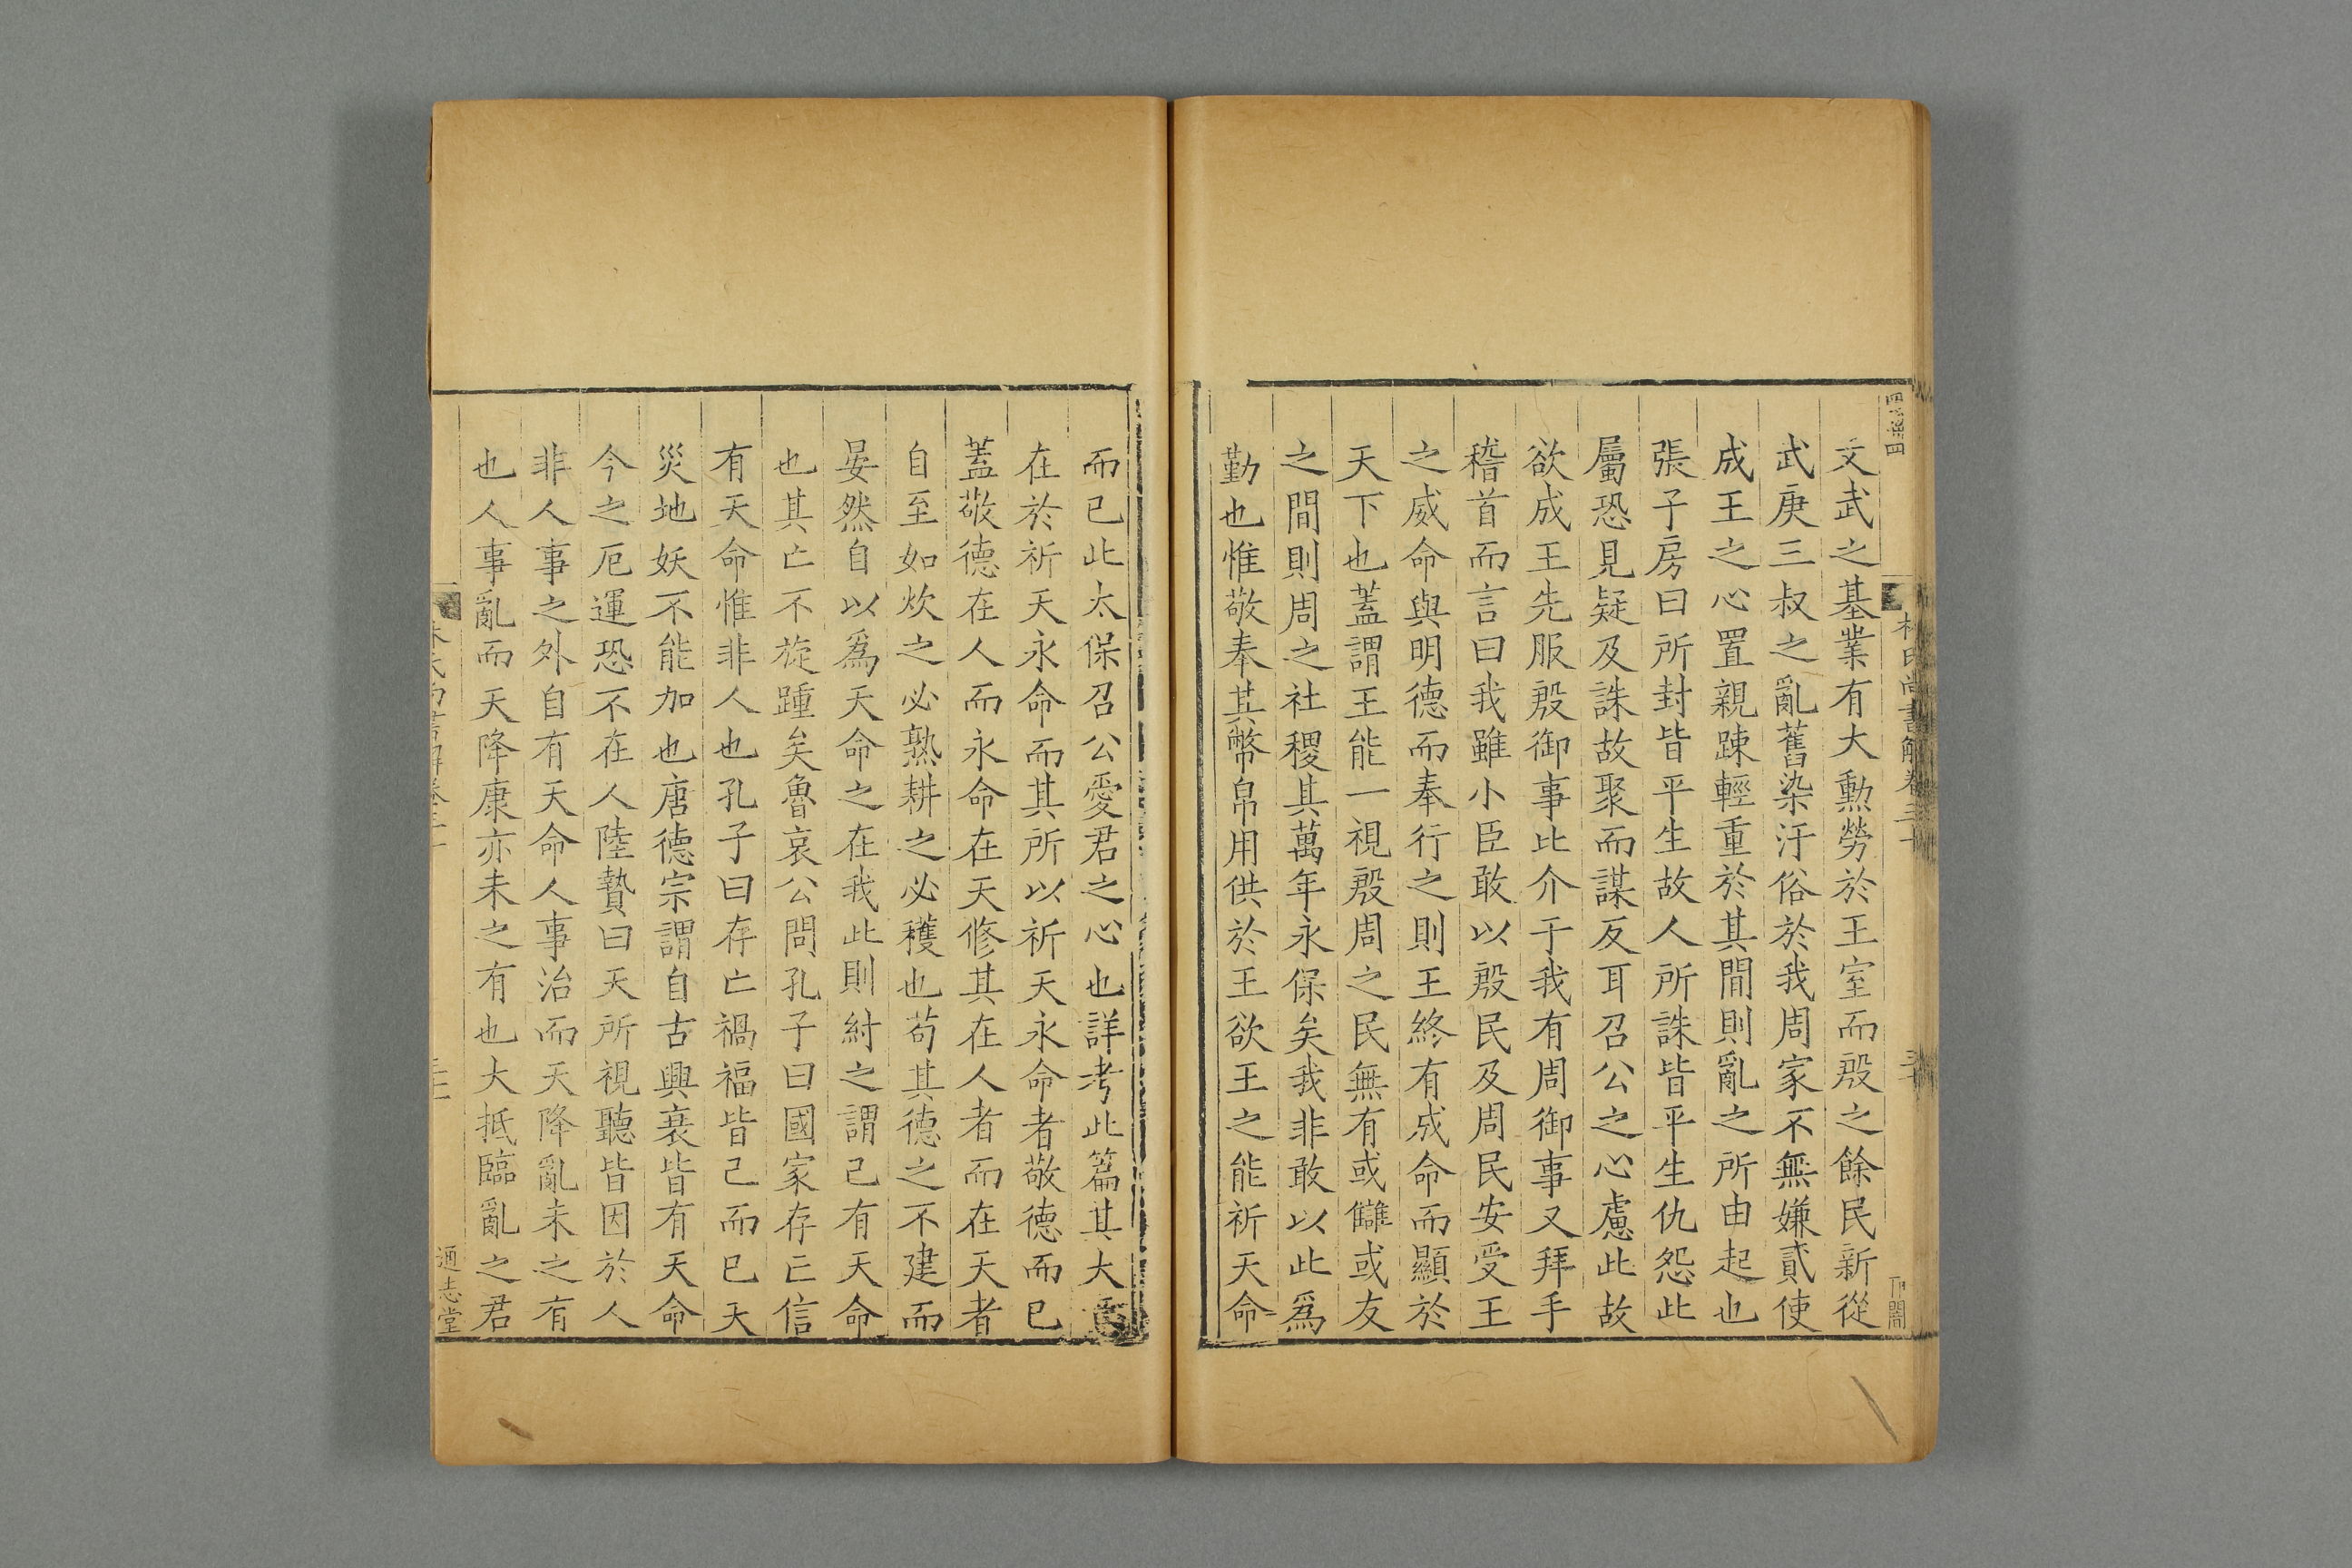 文武之基業有大勲勞於王室而殷之餘民新從
武庚三叔之亂舊染汙俗於我周家不無嫌貳使
成王之心置親踈輕重於其間則亂之所由起也
張子房曰所封皆平生故人所誅皆平生仇怨此
屬恐見疑及誅故聚而謀反耳召公之心慮此故
欲成王先服殷御事比介于我有周御事又拜手
稽首而言曰我雖小臣敢以殷民及周民安受王
之威命與明德而奉行之則王終有成命而顯於
天下也蓋謂王能一視殷周之民無有或讎或友
之間則周之社稷其萬年永保矣我非敢以此爲
勤也惟敬奉其幣帛用供於王欲王之能祈天命
而已此太保召公愛君之心也詳考此篇其大
在於祈天永命而其所以祈天永命者敬德而已
蓋敬德在人而永命在天修其在人者而在天者
自至如炊之必熟耕之必穫也苟其德之不建而
晏然自以爲天命之在我此則紂之謂己有天命
也其亡不旋踵矣魯哀公問孔子曰國家存亡信
有天命惟非人也孔子曰存亡禍福皆己而已天
災地妖不能加也唐德宗謂自古興衰皆有天命
今之厄運恐不在人陸贄曰天所視聽皆因於人
非人事之外自有天命人事治而天降亂未之有
也人事亂而天降康亦未之有也大抵臨亂之君
通志堂